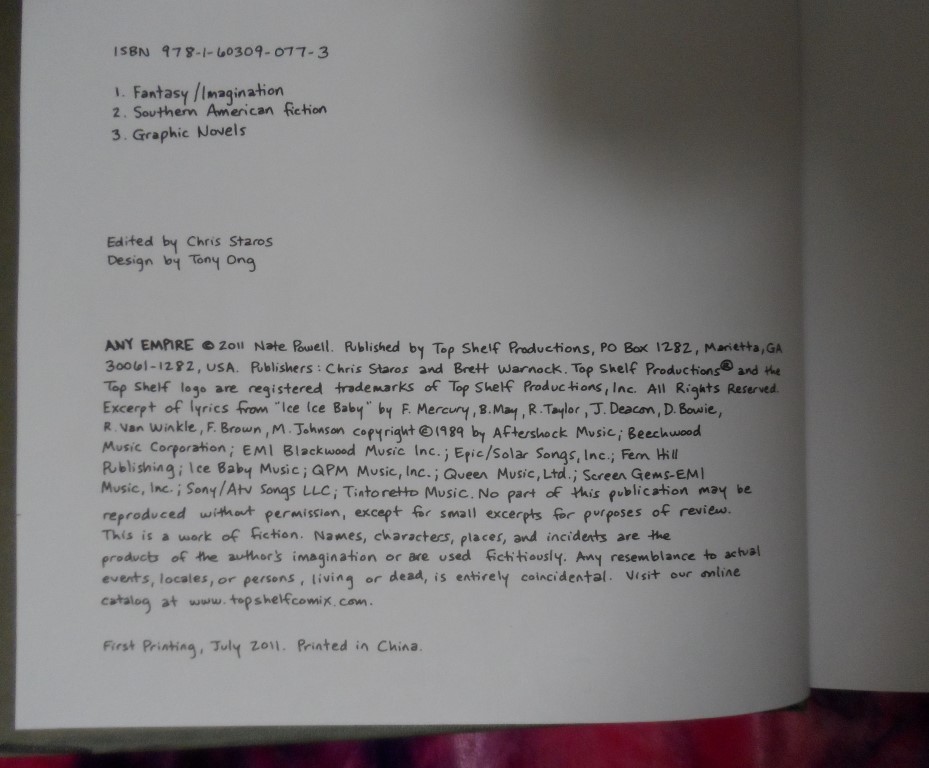 ISBN 978-1-60309-077-3
1. Fantasy/Imagination
2. Southern American fiction
3. Graphic Novels
Edited by Chris Staros
Design by Tony Ong
ANY EMPIRE © 2011 Nate Powell. Published by Top Shelf Productions, PO Box 1282, Marietta, GA
30061-1282, USA. Publishers: Chris Staros and Brett Warnock. Top Shelf Productions® and the
Top Shelf logo are registered trademarks of Top Shelf Productions, Inc. All Rights Reserved.
Excerpt of lyrics from "Ice Ice Baby" by F. Mercury, B. May, R. Taylor, J. Deacon, D. Bowie,
R. Van Winkle, F. Brown, M. Johnson copyright © 1989 by Aftershock Music; Beechwood
Music Corporation; EMI Blackwood Music Inc.; Epic/Solar Songs, Inc.; Fern Hill
Publishing; Ice Baby Music; QPM Music, Inc.; Queen Music, Ltd.; Screen Gems-EMI
Music, Inc.; Sony/Atv Songs LLC; Tintoretto Music. No part of this publication may be
reproduced without permission, except for small excerpts for purposes of review.
This is a work of fiction. Names, characters, places, and incidents are the
products of the author's imagination or are used fictitiously. Any resemblance to actual
events, locales, or persons, living or dead, is entirely coincidental. Visit our online
catalog at www.topshelfcomix.com.
First Printing, July 2011. Printed in China.